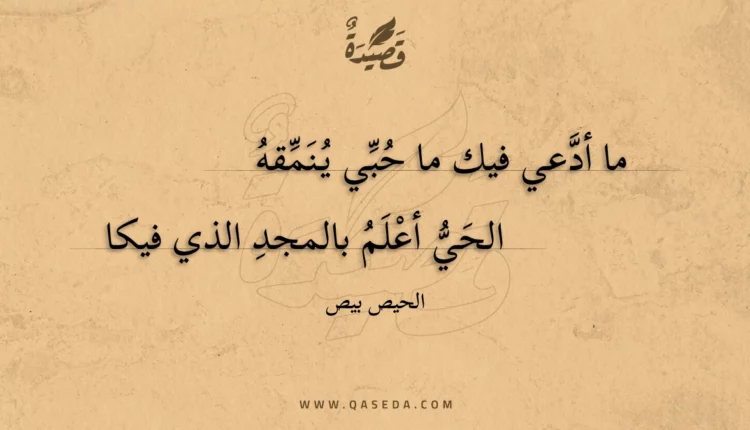 قَصِيدَةٌ
ما أدَّعي فيك ما حُبِّي يُنَمِّقهُ
الحَيُّ أعْلَمُ بالمجدِ الذي فيكا
الحيص بيص
WWW.QASEDA.COM